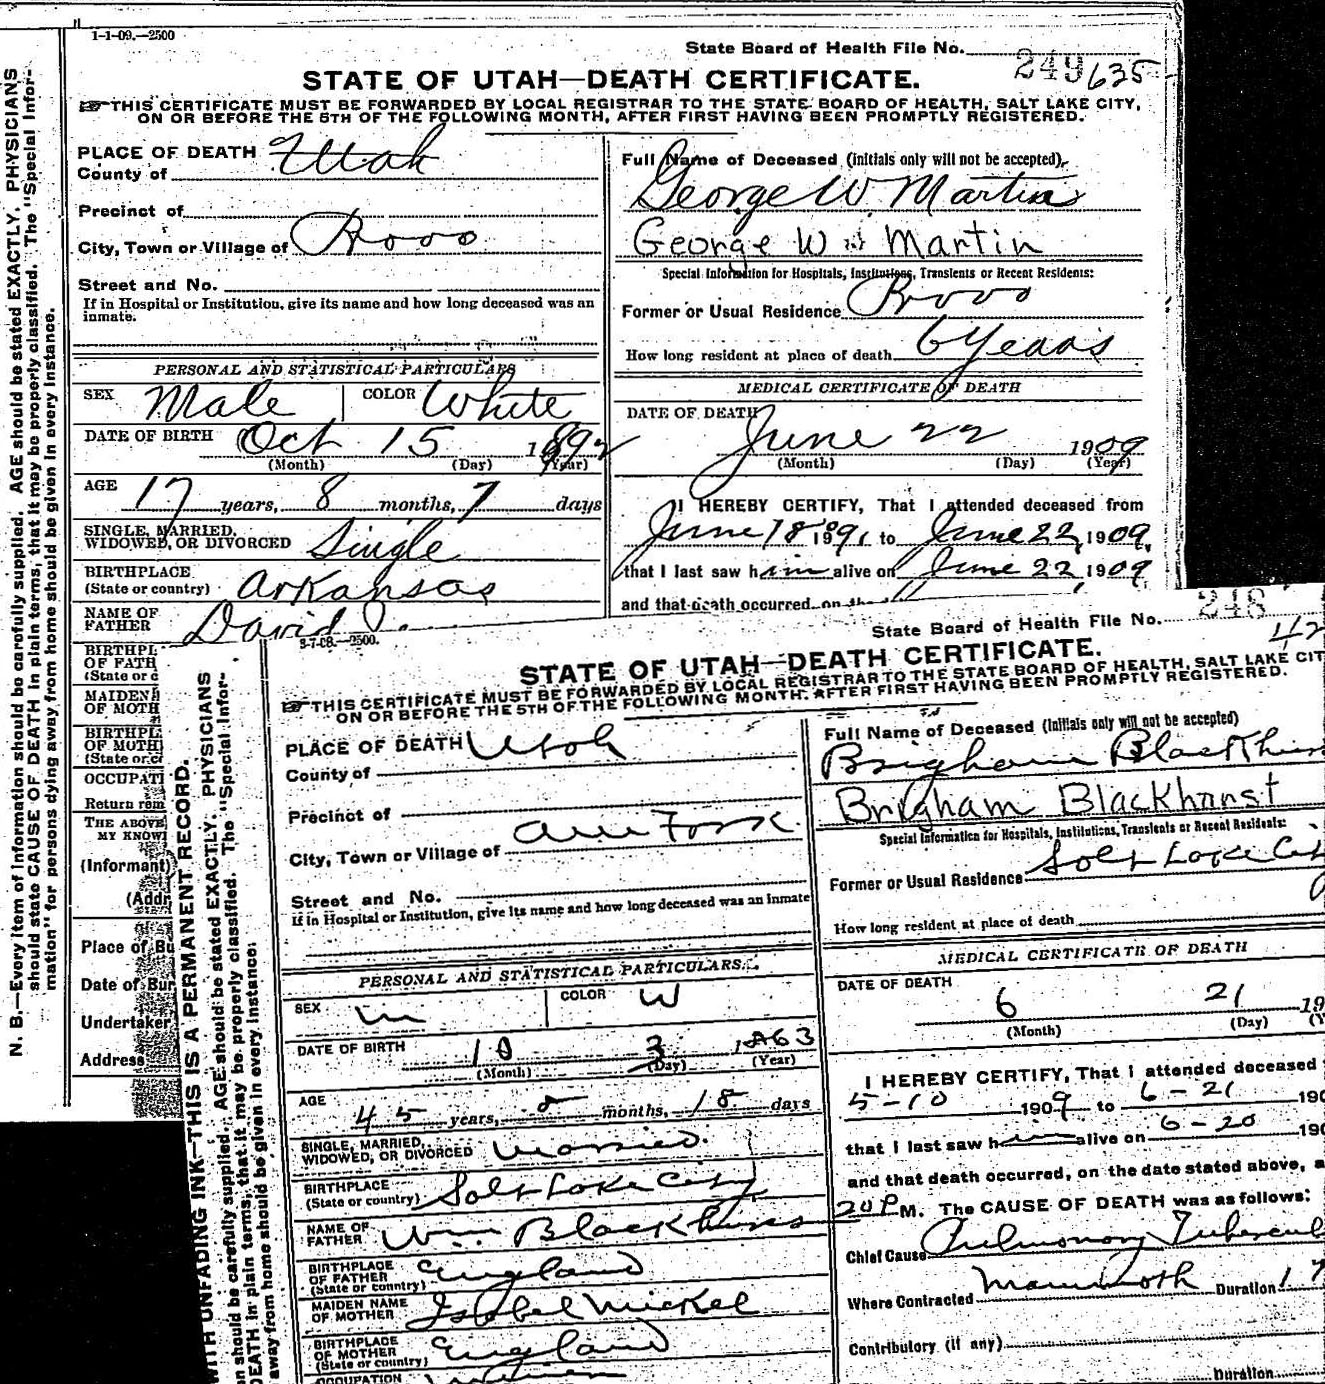 1-1-09.—2500
State Board of Health File No. 249 635
STATE OF UTAH—DEATH CERTIFICATE.
THIS CERTIFICATE MUST BE FORWARDED BY LOCAL REGISTRAR TO THE STATE BOARD OF HEALTH, SALT LAKE CITY,
ON OR BEFORE THE 5TH OF THE FOLLOWING MONTH, AFTER FIRST HAVING BEEN PROMPTLY REGISTERED.
PLACE OF DEATH
County of Utah
Precinct of
City, Town or Village of Provo
Street and No.
If in Hospital or Institution, give its name and how long deceased was an
inmate.
PERSONAL AND STATISTICAL PARTICULARS
SEX Male COLOR White
DATE OF BIRTH Oct 15
(Month) (Day) (Year)
AGE 17 years, 8 months, 7 days
SINGLE, MARRIED,
WIDOWED, OR DIVORCED Single
BIRTHPLACE
(State or country) Arkansas
NAME OF
FATHER David
BIRTHPL
OF FATH
(State or c
MAIDEN
OF MOTH
BIRTHPL
OF MOTH
(State or c
OCCUPATI
Return rem
THE ABOVE
MY KNOW
(Informant)
(Addr
Place of Bu
Date of Bur
Undertaker
Address
Full Name of Deceased (initials only will not be accepted)
George W. Martin
George W. Martin
Special Information for Hospitals, Institutions, Transients or Recent Residents:
Former or Usual Residence Provo
How long resident at place of death 6 Years
MEDICAL CERTIFICATE OF DEATH
DATE OF DEATH
June 22 1909
(Month) (Day) (Year)
I HEREBY CERTIFY, That I attended deceased from
June 18 to June 22, 1909,
that I last saw him alive on June 22, 1909
and that death occurred, on the
N. B.—Every item of information should be carefully supplied. AGE should be stated EXACTLY. PHYSICIANS
should state CAUSE OF DEATH in plain terms, that it may be properly classified. The "Special Infor-
mation" for persons dying away from home should be given in every instance.
3-7-08.—2500.
State Board of Health File No. 248
42
STATE OF UTAH—DEATH CERTIFICATE.
THIS CERTIFICATE MUST BE FORWARDED BY LOCAL REGISTRAR TO THE STATE BOARD OF HEALTH, SALT LAKE CIT
ON OR BEFORE THE 5TH OF THE FOLLOWING MONTH, AFTER FIRST HAVING BEEN PROMPTLY REGISTERED.
PLACE OF DEATH Utah
County of
Precinct of
City, Town or Village of Am Fork
Street and No.
If in Hospital or Institution, give its name and how long deceased was an inmate
PERSONAL AND STATISTICAL PARTICULARS.
SEX m COLOR W
DATE OF BIRTH 10 3 1863
(Month) (Day) (Year)
AGE 45 years, 8 months, 18 days
SINGLE, MARRIED,
WIDOWED, OR DIVORCED Married.
BIRTHPLACE
(State or country) Salt Lake City
NAME OF
FATHER Wm. Blackhurst
BIRTHPLACE
OF FATHER
(State or country) England
MAIDEN NAME
OF MOTHER Isabel Mickel
BIRTHPLACE
OF MOTHER
(State or country) England
OCCUPATION
Full Name of Deceased (initials only will not be accepted)
Brigham Blackhurs
Brigham Blackhurst
Special Information for Hospitals, Institutions, Transients or Recent Residents:
Former or Usual Residence Salt Lake City
How long resident at place of death
MEDICAL CERTIFICATE OF DEATH
DATE OF DEATH
6 21 19
(Month) (Day) (Y
I HEREBY CERTIFY, That I attended deceased
5-10 1909 to 6-21 190
that I last saw him alive on 6-20 190
and that death occurred, on the date stated above, a
20 P M. The CAUSE OF DEATH was as follows:
Chief Cause Pulmonary Tubercul
Where Contracted Mammoth Duration 17
Contributory (if any)
Duration
WITH UNFADING INK—THIS IS A PERMANENT RECORD.
on should be carefully supplied. AGE should be stated EXACTLY. PHYSICIANS
DEATH in plain terms, that it may be properly classified. The "Special Infor-
away from home should be given in every instance.